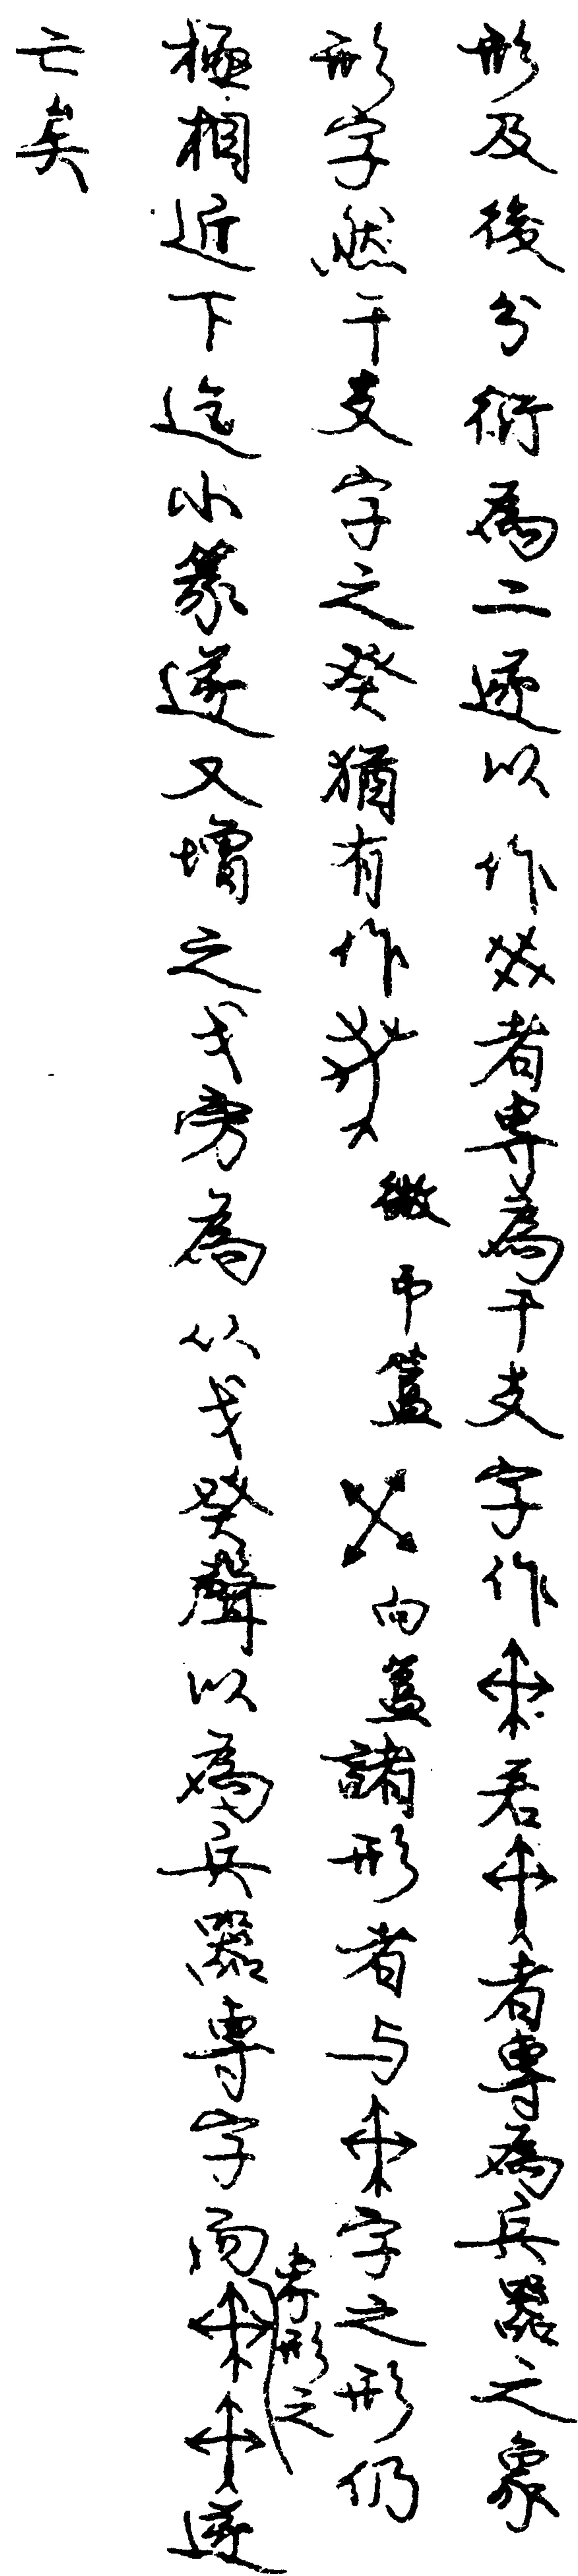 形及後分衍為二遂以作者專為干支字作若者專為兵器之象
形字然干支字之癸猶有作 微帀簋 向簋 諸形者与字之形仍
極相近下迄小篆遂又增之戈旁為从戈癸聲以為兵器專字而象形之遂
亡矣